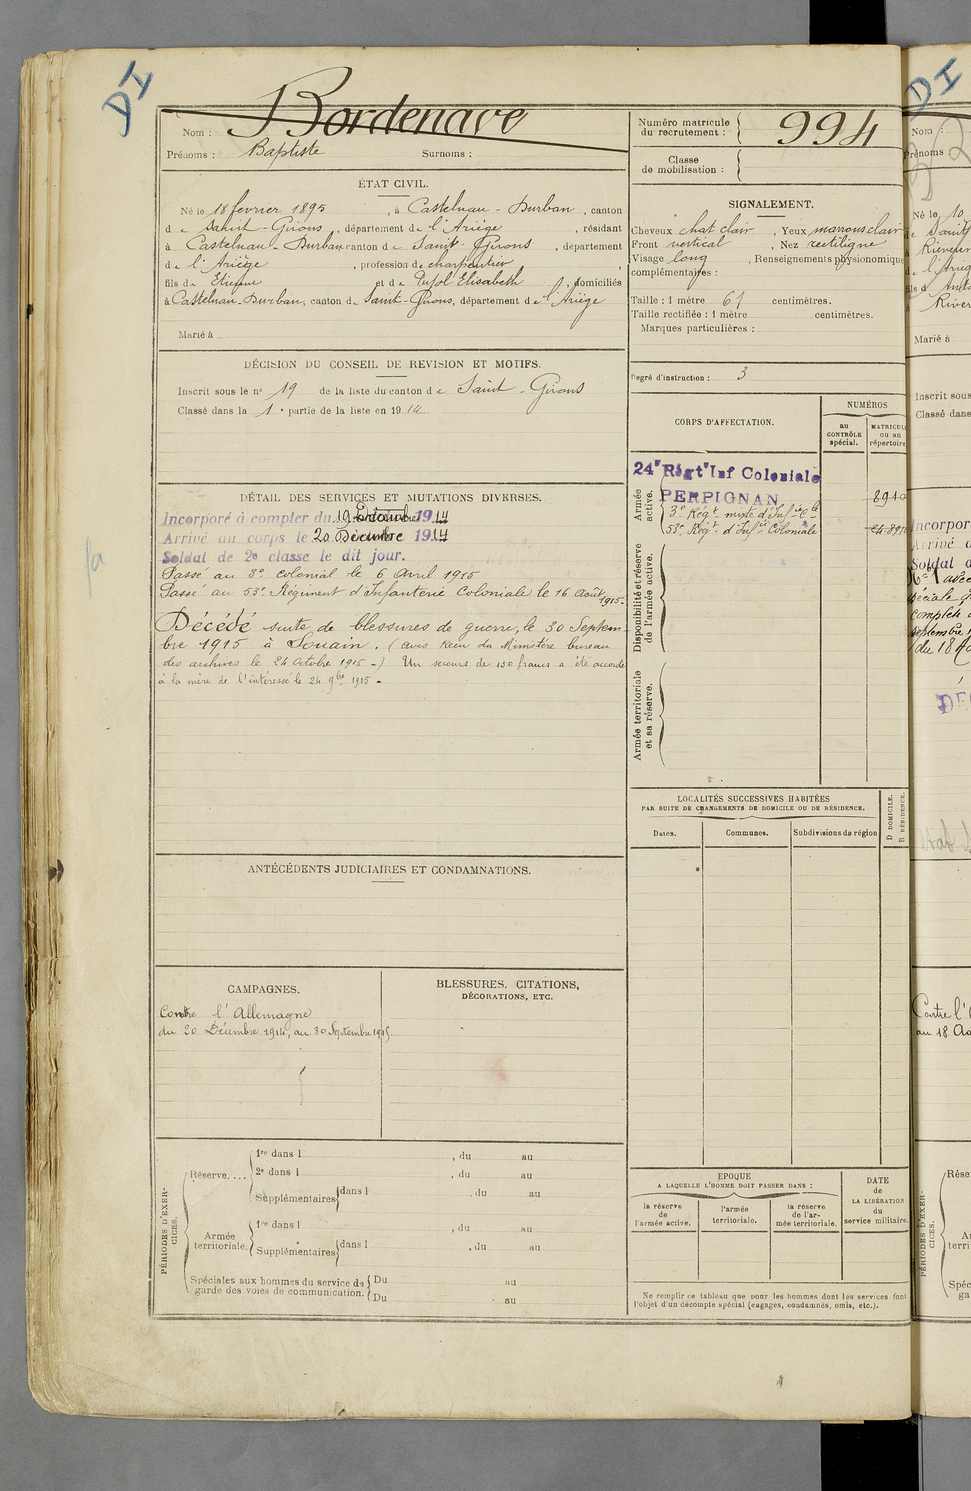 DI
DI
Bordenave
Nom :
Prénoms : Baptiste Surnoms :
Numéro matricule
du recrutement : 994
Classe
de mobilisation :
ÉTAT CIVIL.
Né le 18 fevrier 1895, à Castelnau-Durban, canton
de Saint-Girons, département de l'Ariège, résidant
à Castelnau-Durban canton de Saint-Girons, département
de l'Ariège, profession de charpentier,
fils de Etienne et de Pujol Elisabeth, domiciliés
à Castelnau-Durban, canton de Saint-Girons, département de l'Ariège
Marié à
SIGNALEMENT.
Cheveux chat clair, Yeux marrons clair
Front vertical, Nez rectiligne
Visage long, Renseignements physionomiqu
complémentaires :
Taille : 1 mètre 61 centimètres.
Taille rectifiée : 1 mètre centimètres.
Marques particulières :
Degré d'instruction : 3
DÉCISION DU CONSEIL DE REVISION ET MOTIFS.
Inscrit sous le n° 19 de la liste du canton de Saint-Girons
Classé dans la 1e partie de la liste en 1914.
CORPS D'AFFECTATION.
NUMÉROS
au
CONTRÔLE
spécial.
MATRICUL
ou au
répertoire
Armée
active.
24e Régt Inf Coloniale
PERPIGNAN
8910
3e Régt mixte d'Infie Cle
53e Régt d'Infie Coloniale
Disponibilité et réserve
de l'armée active.
Armée territoriale
et sa réserve.
DÉTAIL DES SERVICES ET MUTATIONS DIVERSES.
Incorporé à compter du 19 Décembre 1914
Arrivé au corps le 20 Décembre 1914
Soldat de 2e classe le dit jour.
Passé au 3e colonial le 6 Avril 1915
Passé au 53e Régiment d'Infanterie Coloniale le 16 Août 1915.
Décédé suite de blessures de guerre, le 30 Septem
bre 1915 à Souain. (avis du Ministère bureau
des archives le 24 Octobre 1915 -) Un secours de 150 francs a été accordé
à la mère de l'intéressé le 24 9bre 1915 -
LOCALITÉS SUCCESSIVES HABITÉES
PAR SUITE DE CHANGEMENTS DE DOMICILE OU DE RÉSIDENCE.
Dates.
Communes.
Subdivisions de région
D DOMICILE.
R RÉSIDENCE.
ANTÉCÉDENTS JUDICIAIRES ET CONDAMNATIONS.
CAMPAGNES.
Contre l'Allemagne
du 20 Décembre 1914, au 30 Septembre 1915.
BLESSURES, CITATIONS,
DÉCORATIONS, ETC.
PÉRIODES D'EXER-
CICES.
Réserve....
1re dans l , du au
2e dans l , du au
Supplémentaires dans l , du au
Armée
territoriale.
1re dans l , du au
Supplémentaires dans l , du au
Spéciales aux hommes du service de
garde des voies de communication.
Du au
Du au
EPOQUE
A LAQUELLE L'HOMME DOIT PASSER DANS :
la réserve
de
l'armée active.
l'armée
territoriale.
la réserve
de l'ar-
mée territoriale.
DATE
de
LA LIBÉRATION
du
service militaire.
Ne remplir ce tableau que pour les hommes dont les services font
l'objet d'un décompte spécial (engagés, condamnés, omis, etc.).
Nom :
Prénoms :
Né le 10
Marié à
Inscrit sous
Classé dans
Incorpor
Arrivé a
Soldat d
du 18 Ao
Contre l'
au 18 Ao